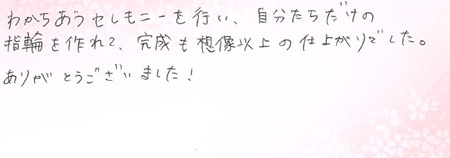 わかちあうセレモニーを行い、自分たちだけの
指輪を作れて、完成も想像以上の仕上がりでした。
ありがとうございました！